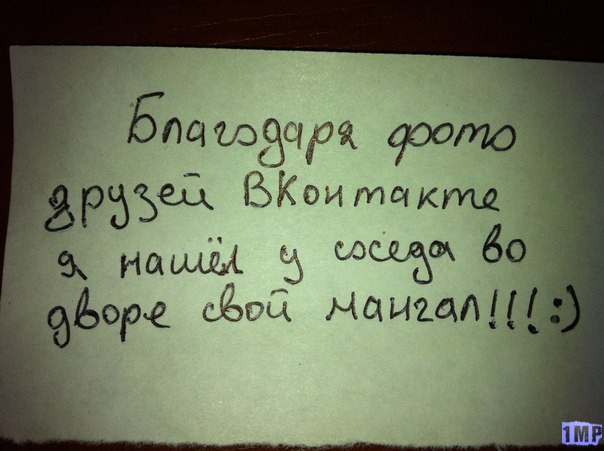 Благодаря фото
друзей ВКонтакте
я нашёл у соседа во
дворе свой мангал!!!:)
1MP